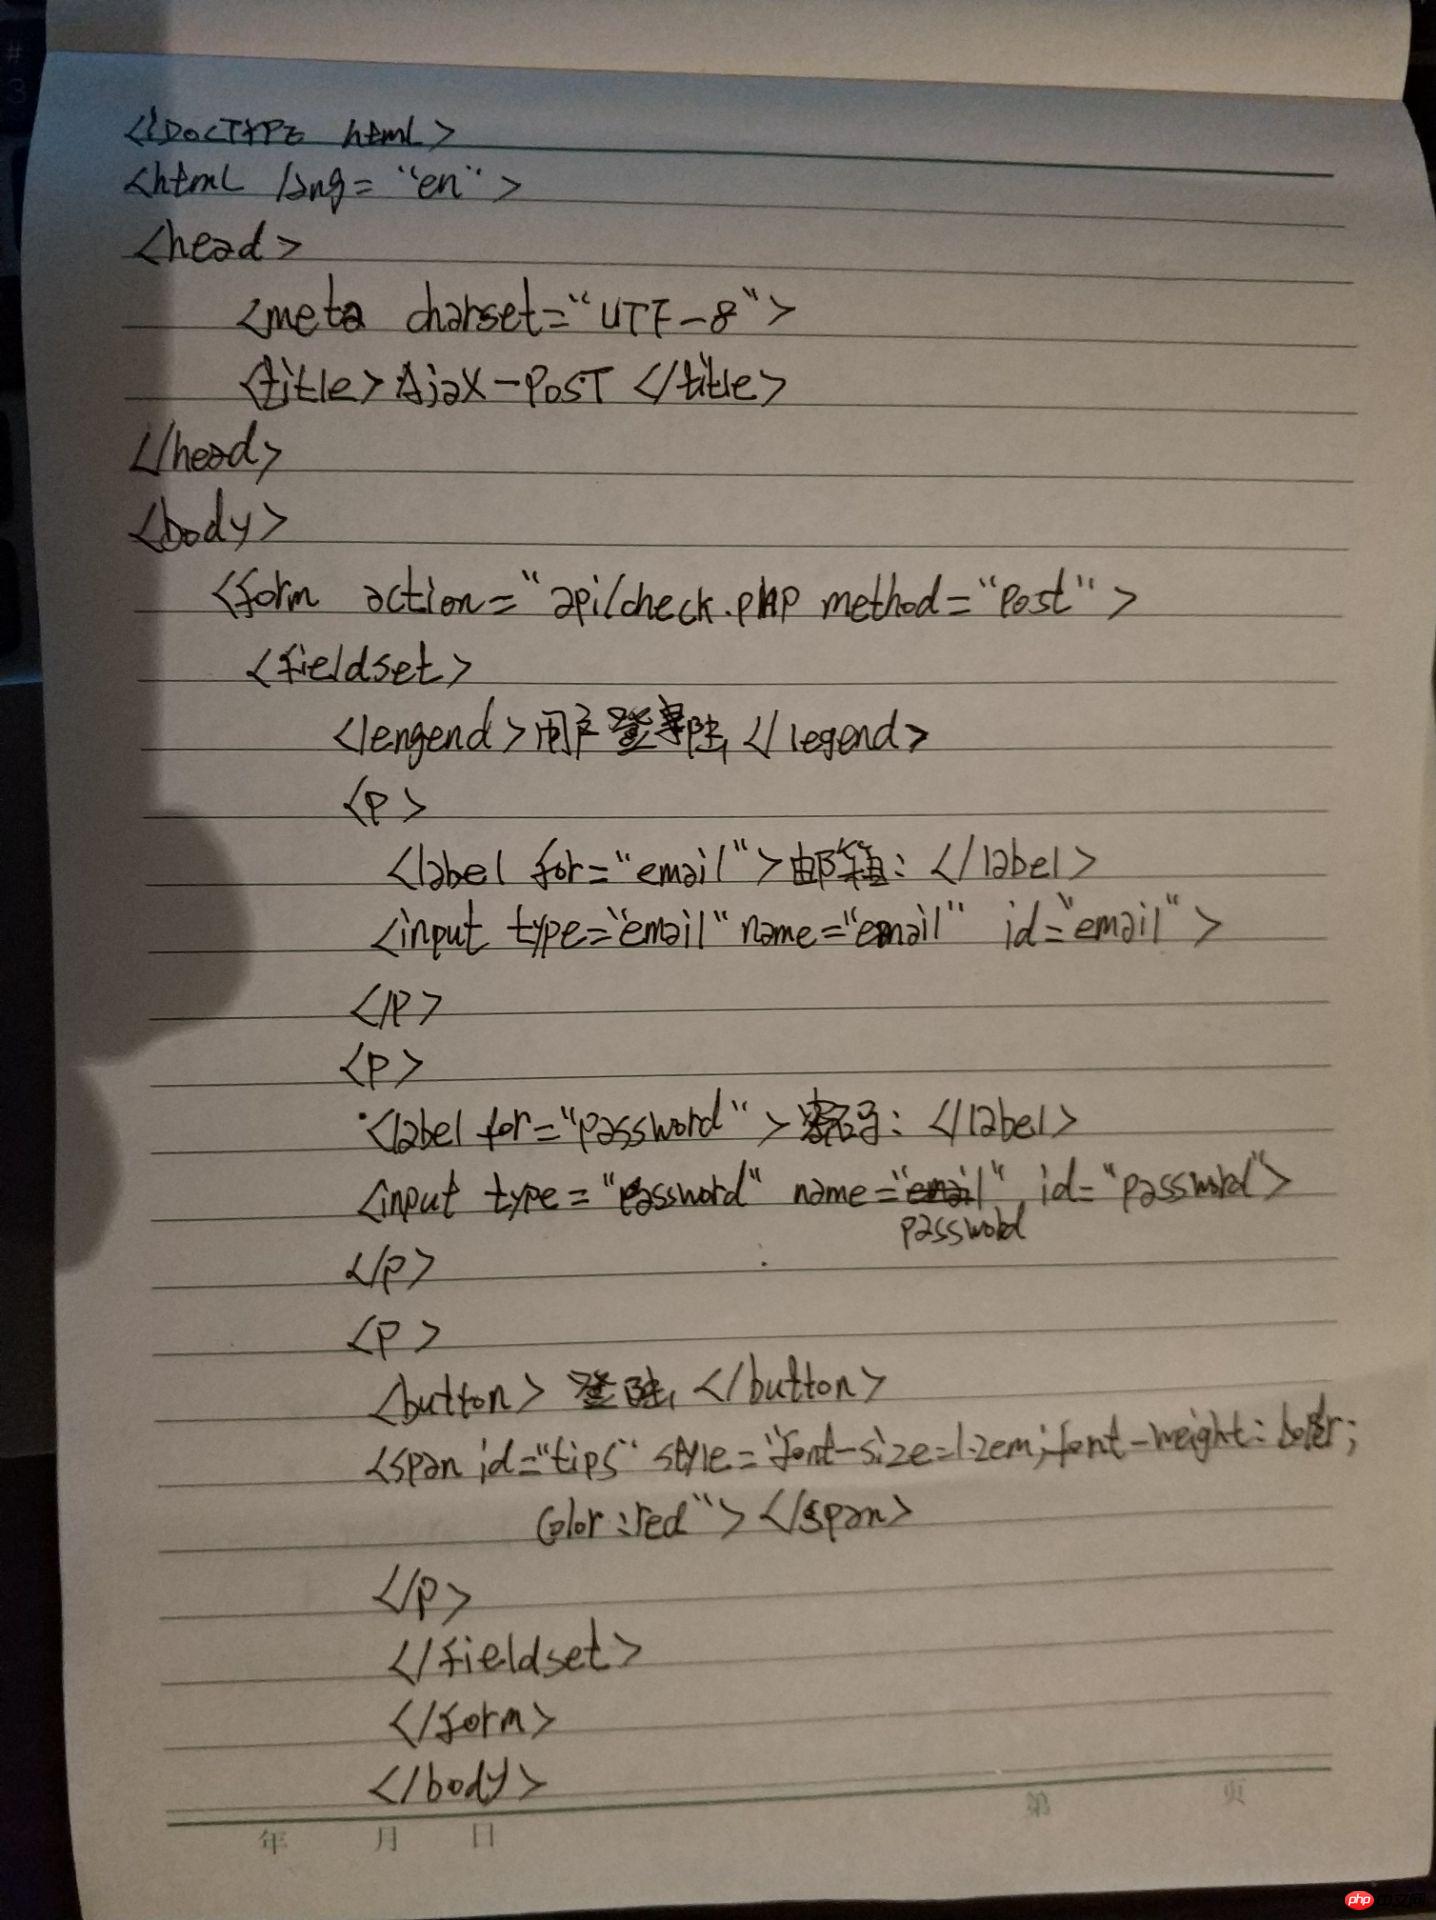 <!DOCTYPE html>
<html lang="en">
<head>
<meta charset="UTF-8">
<title>Ajax-POST</title>
</head>
<body>
<form action="api/check.php method="Post">
<fieldset>
<lengend>用户登陆</legend>
<p>
<label for="email">邮箱:</label>
<input type="email" name="email" id="email">
</p>
<p>
<label for="password">密码:</label>
<input type="password" name="password" id="password">
</p>
<p>
<button>登陆</button>
<span id="tips" style="font-size=1.2em;font-weight:bolder;
Color:red"></span>
</p>
</fieldset>
</form>
</body>
第 页
年 月 日
php